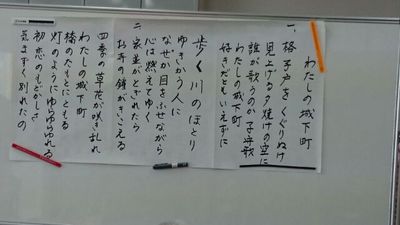 わたしの城下町
一、格子戸をくぐりぬけ
見上げる夕焼けの空に
誰が歌うのか子守歌
わたしの城下町
好きだともいえずに
歩く川のほとり
ゆきかう人に
なぜか目をふせながら
心は燃えてゆく
二家並がとぎれたら
お寺の鐘がきこえる
四季の草花が咲き乱れ
わたしの城下町
橋のたもとにともる
灯のようにゆらゆらゆれる
初恋のもどかしさ
気まずく別れたの